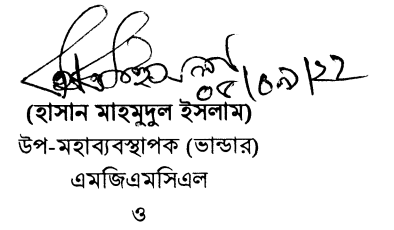 ০৫/০৯/২২
(হাসান মাহমুদুল ইসলাম)
উপ-মহাব্যবস্থাপক (ভান্ডার)
এমজিএমসিএল
ও